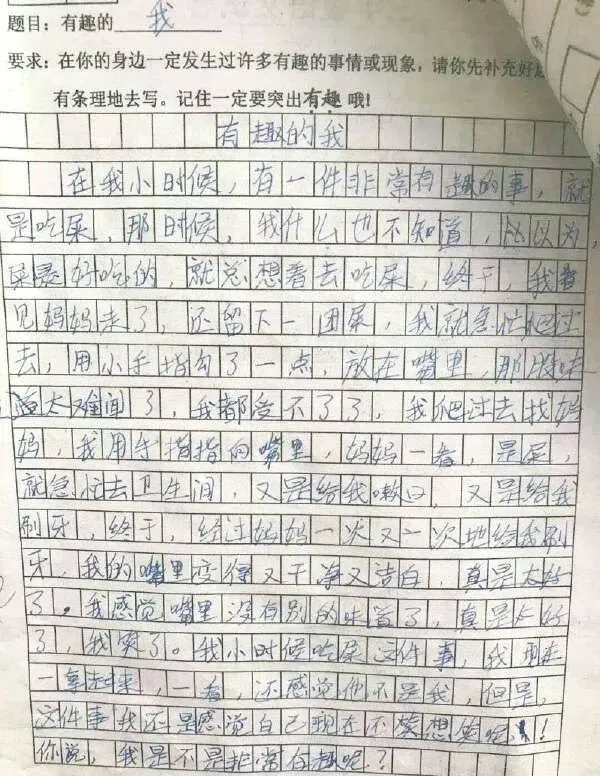 题目：有趣的 我
要求：在你的身边一定发生过许多有趣的事情或现象，请你先补充好
有条理地去写。记住一定要突出有趣哦!
有趣的我
在我小时候，有一件非常有趣的事，就
是吃屎，那时候，我什么也不知道，以为
屎是好吃的，就总想着去吃屎，终于，我看
见妈妈走了，还留下一团屎，我就急忙爬过
去，用小手指勾了一点，放在嘴里，那味
道太难闻了，我都受不了了，我爬过去找妈
妈，我用手指指向嘴里，妈妈一看，是屎，
就急忙去卫生间，又是给我嗽口，又是给我
刷牙，终于，经过妈妈一次又一次地给我刷
牙，我的嘴里变得又干净又洁白，真是太好
了。我感觉嘴里没有别的味道了，真是太好
了，我笑了。我小时候吃屎这件事，我现在
一拿起来，一看，还感觉你不是我，但是，
这件事我还是感觉自己现在还笑想笑呢！
你说，我是不是非常有趣呢？